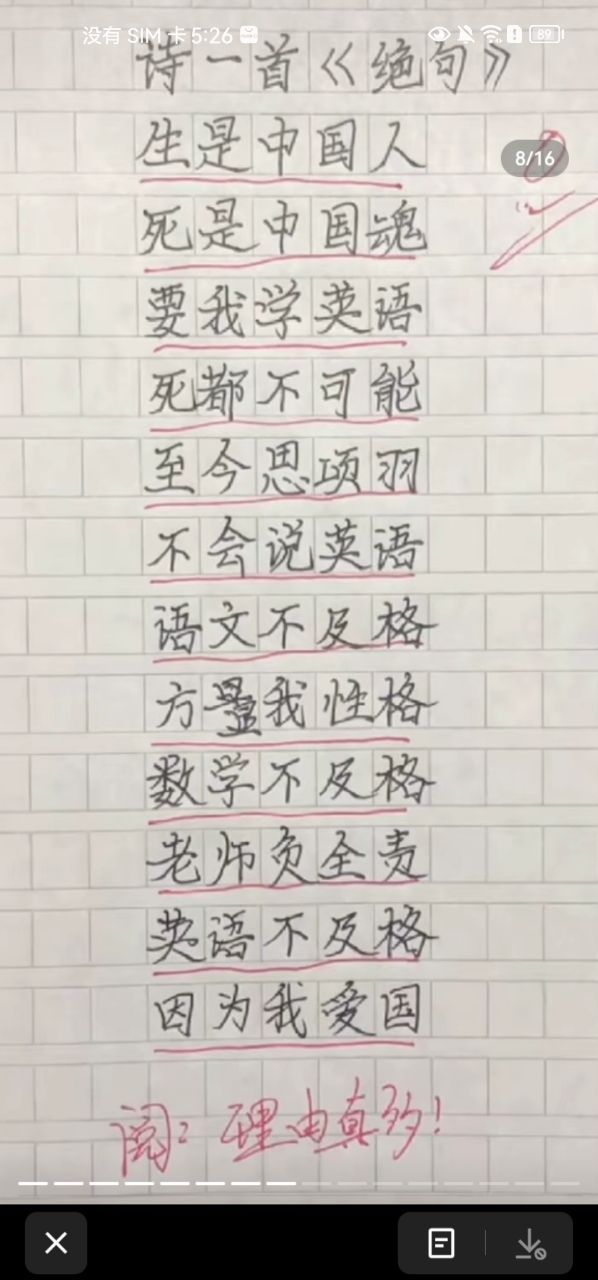 没有 SIM 卡 5:26
89
诗一首《绝句》
8/16
生是中国人
死是中国魂
要我学英语
死都不可能
至今思项羽
不会说英语
语文不及格
方显我性格
数学不及格
老师负全责
英语不及格
因为我爱国
阅：理由真多！